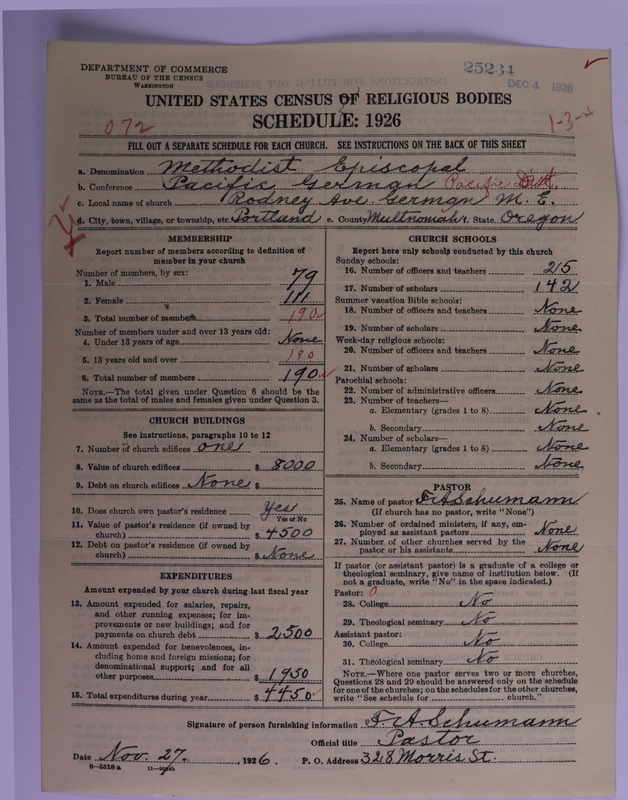 DEPARTMENT OF COMMERCE
BUREAU OF THE CENSUS
WASHINGTON
25234
DEC 4 1926
UNITED STATES CENSUS OF RELIGIOUS BODIES
SCHEDULE: 1926
072
1-3-
FILL OUT A SEPARATE SCHEDULE FOR EACH CHURCH. SEE INSTRUCTIONS ON THE BACK OF THIS SHEET
a. Denomination Methodist Episcopal
b. Conference Pacific German Pacific
c. Local name of church Rodney Ave. German M. E.
d. City, town, village, or township, etc. Portland e. County Multnomah f. State Oregon
MEMBERSHIP
Report number of members according to definition of member in your church
Number of members, by sex:
1. Male 79
2. Female 111
3. Total number of members 190
Number of members under and over 13 years old:
4. Under 13 years of age None
5. 13 years old and over 190
6. Total number of members 190
NOTE.—The total given under Question 6 should be the same as the total of males and females given under Question 3.
CHURCH BUILDINGS
See instructions, paragraphs 10 to 12
7. Number of church edifices one
8. Value of church edifices $ 8000
9. Debt on church edifices None $
10. Does church own pastor's residence? Yes
Yes or No
11. Value of pastor's residence (if owned by church) $ 4500
12. Debt on pastor's residence (if owned by church) $ None
EXPENDITURES
Amount expended by your church during last fiscal year
13. Amount expended for salaries, repairs, and other running expenses; for improvements or new buildings; and for payments on church debt $ 2500
14. Amount expended for benevolences, including home and foreign missions; for denominational support; and for all other purposes $ 1950
15. Total expenditures during year $ 4450
CHURCH SCHOOLS
Report here only schools conducted by this church
Sunday schools:
16. Number of officers and teachers 25
17. Number of scholars 142
Summer vacation Bible schools:
18. Number of officers and teachers None
19. Number of scholars None
Week-day religious schools:
20. Number of officers and teachers None
21. Number of scholars None
Parochial schools:
22. Number of administrative officers None
23. Number of teachers—
a. Elementary (grades 1 to 8) None
b. Secondary None
24. Number of scholars—
a. Elementary (grades 1 to 8) None
b. Secondary None
PASTOR
25. Name of pastor F. A. Schumann
(If church has no pastor, write "None")
26. Number of ordained ministers, if any, employed as assistant pastors None
27. Number of other churches served by the pastor or his assistants None
If pastor (or assistant pastor) is a graduate of a college or theological seminary, give name of institution below. (If not a graduate, write "No" in the space indicated.)
Pastor: 0
28. College No
29. Theological seminary No
Assistant pastor:
30. College No
31. Theological seminary No
NOTE.—Where one pastor serves two or more churches, Questions 28 and 29 should be answered only on the schedule for one of the churches; on the schedules for the other churches, write "See schedule for ........ church."
Signature of person furnishing information F. A. Schumann
Official title Pastor
Date Nov. 27. , 1926. P. O. Address 328 Morris St.
8—5518 a